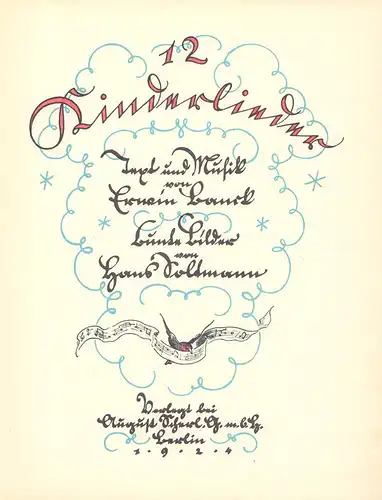 12
Kinderlieder
Text und Musik
von
Erwin Banck
Bunte Bilder
von
Hans Soltmann
Verlegt bei
August Scherl G.m.b.H.
Berlin
1·9·2·4